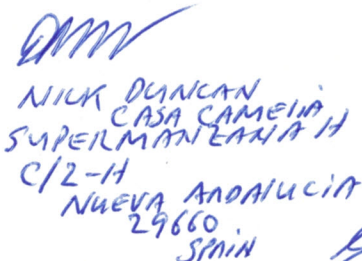 NICK DUNCAN
CASA CAMELIA
SUPERMANZANA H
C/2-H
NUEVA ANDALUCIA
29660
SPAIN